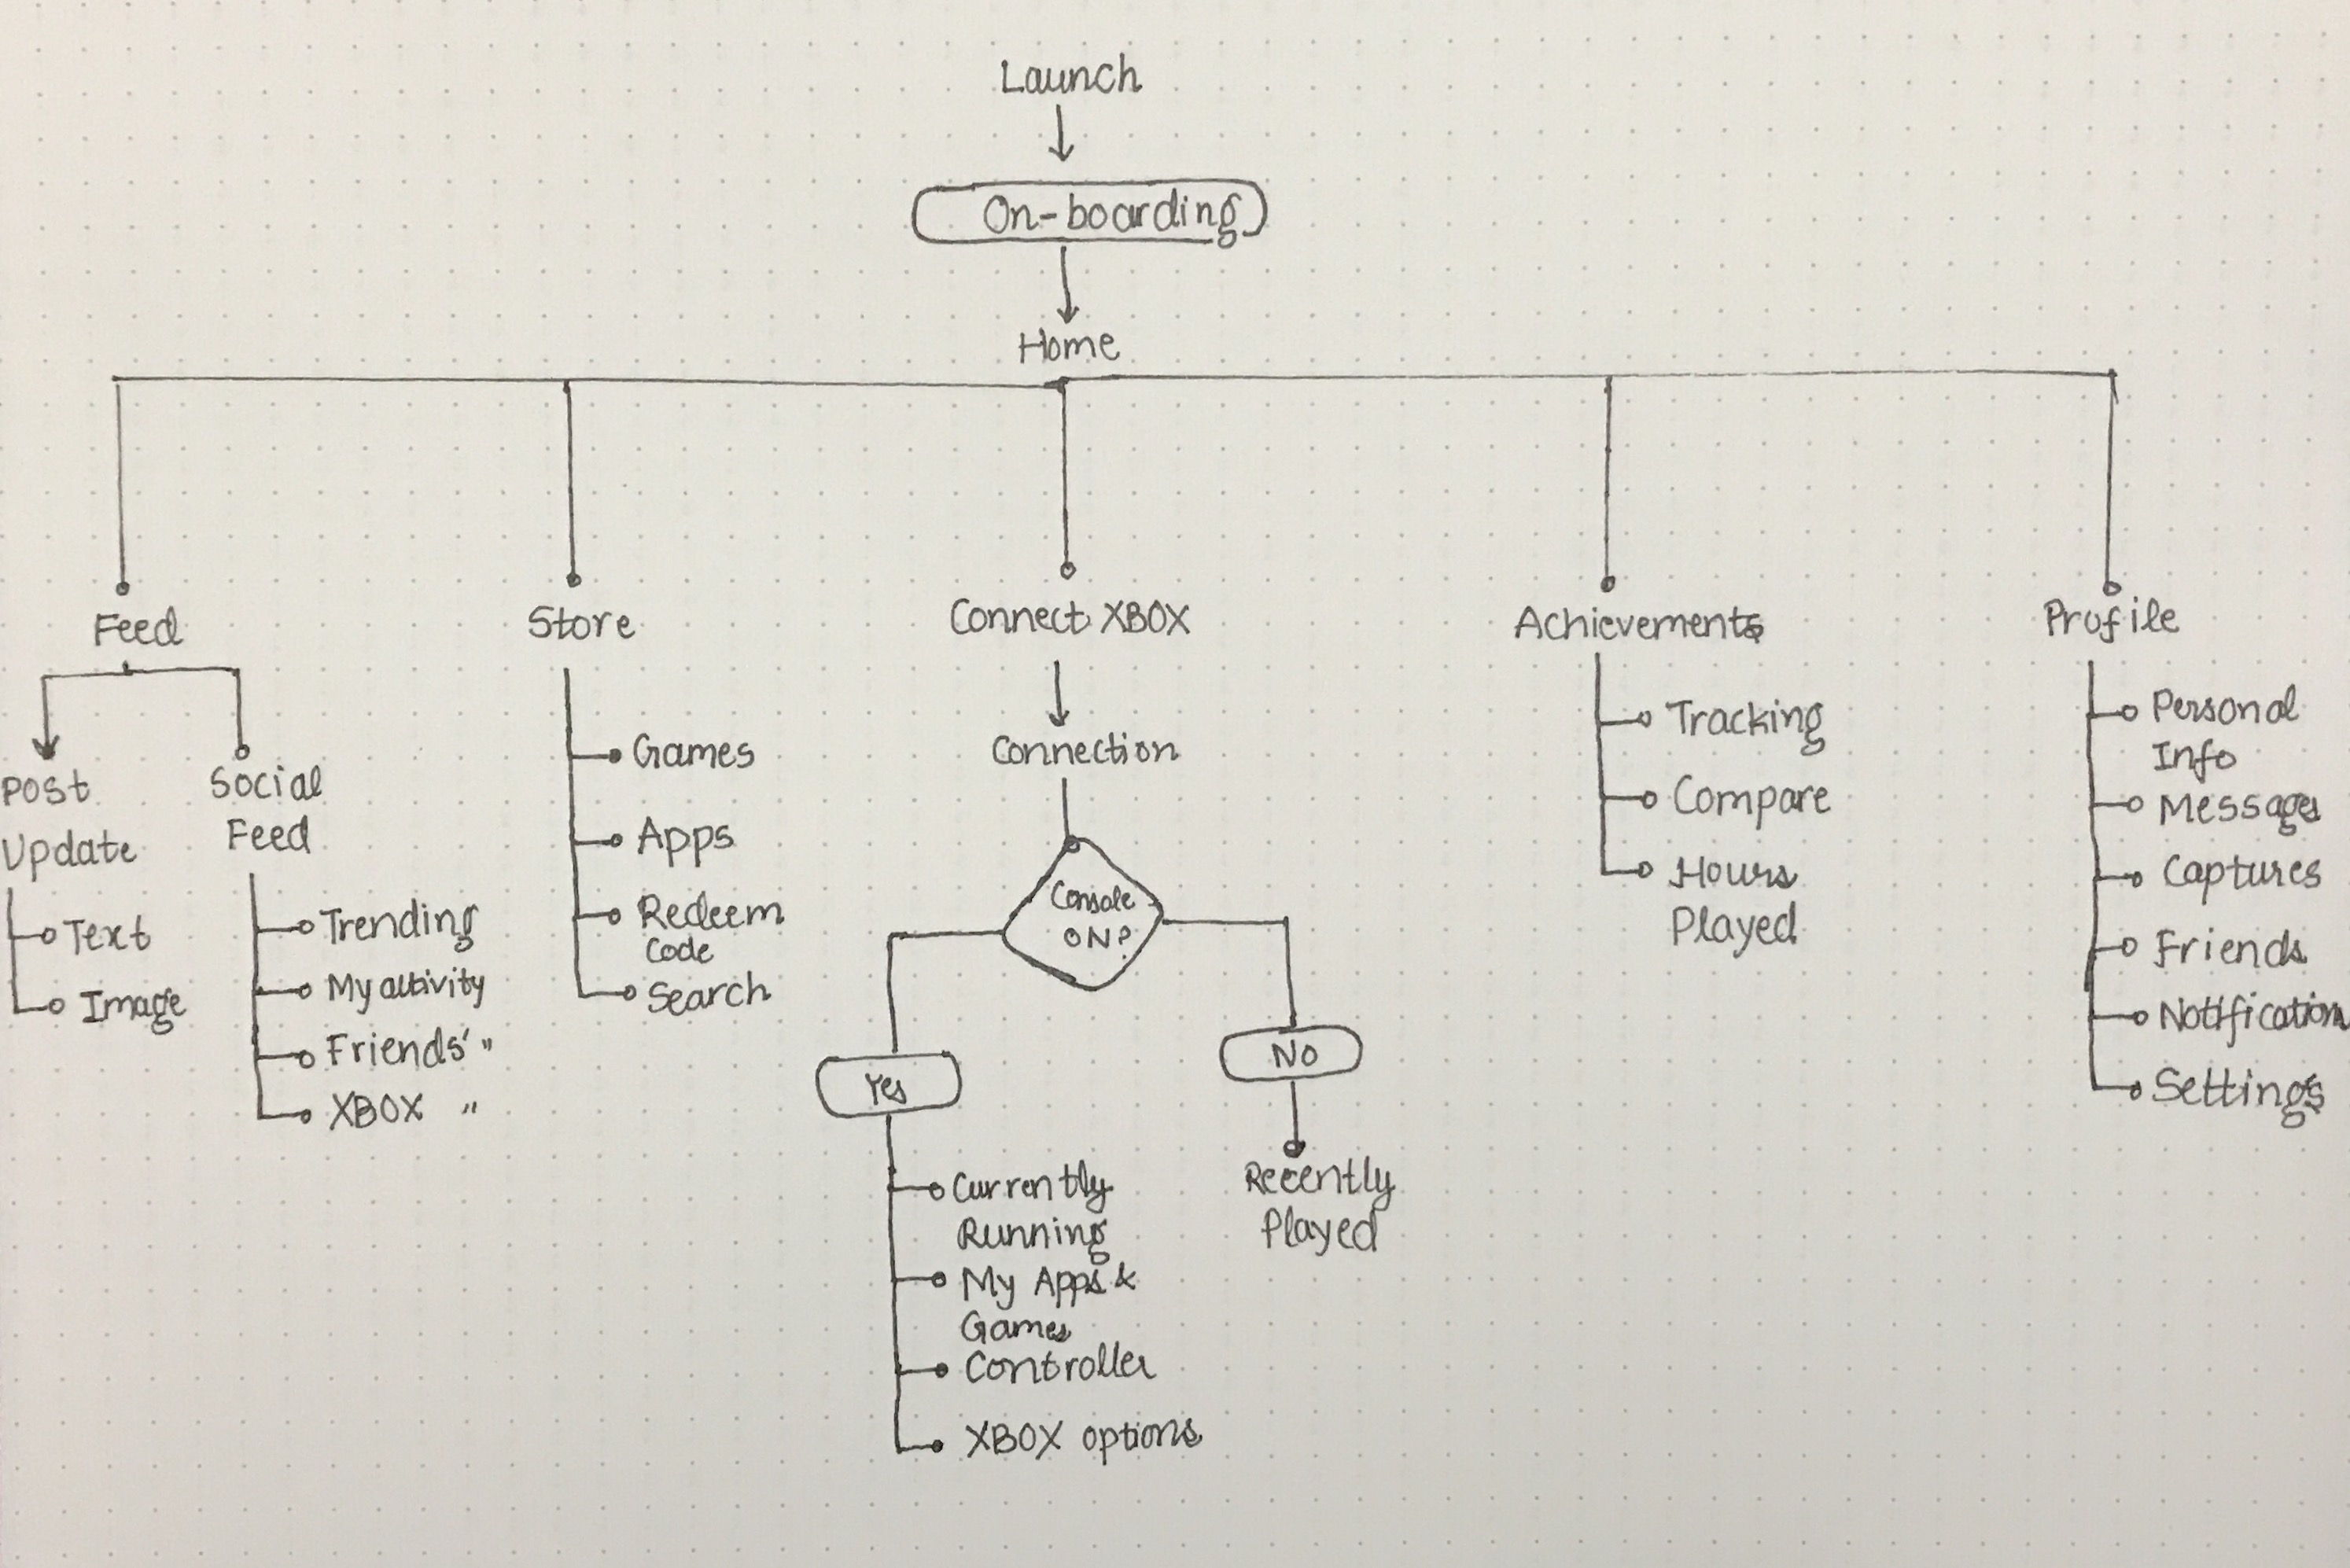 Launch
On-boarding
Home
Feed
Post
Update
Text
Image
Social
Feed
Trending
My activity
Friends' "
XBOX "
Store
Games
Apps
Redeem
Code
Search
Connect XBOX
Connection
Console
ON?
Yes
Currently
Running
My Apps &
Games
Controller
XBOX options
No
Recently
Played
Achievements
Tracking
Compare
Hours
Played
Profile
Personal
Info
Messages
Captures
Friends
Notification
Settings